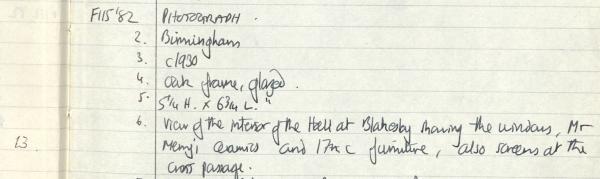 F115'82 PHOTOGRAPH.
2. Birmingham
3. c1930
4. oak frame, glazed.
5. 5¼ H. x 6¾ L. "
6. View of the interior of the Hall at Blakesby showing the windows, Mr
13. Merry's ceramics and 17th c furniture, also screens at the
cross passage.